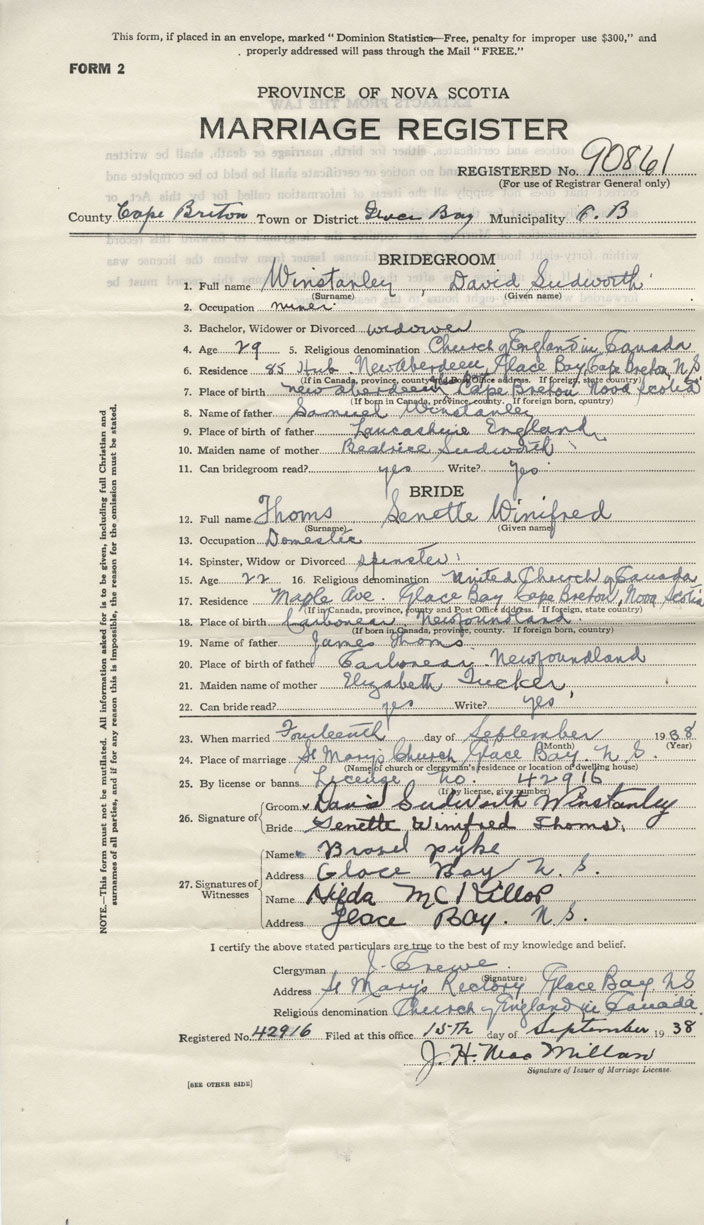 This form, if placed in an envelope, marked "Dominion Statistics—Free, penalty for improper use $300," and
properly addressed will pass through the Mail "FREE."
FORM 2
PROVINCE OF NOVA SCOTIA
MARRIAGE REGISTER
REGISTERED No. 90861
(For use of Registrar General only)
County Cape Breton Town or District Bay Municipality C. B
BRIDEGROOM
1. Full name Winstanley, David Sudworth
(Surname) (Given name)
2. Occupation miner
3. Bachelor, Widower or Divorced widower
4. Age 29 5. Religious denomination Church of England in Canada
6. Residence 85 Hub. New Aberdeen, Glace Bay Cape Breton, N.S
(If in Canada, province, county and Post Office address. If foreign, state country)
7. Place of birth New Aberdeen Cape Breton Nova Scotia
(If born in Canada, province, county. If foreign born, country)
8. Name of father Samuel Winstanley
9. Place of birth of father Lancashire England
10. Maiden name of mother Beatrice Sudworth
11. Can bridegroom read? yes Write? Yes
BRIDE
12. Full name Thoms Genette Winifred
(Surname) (Given name)
13. Occupation Domestic
14. Spinster, Widow or Divorced spinster
15. Age 22 16. Religious denomination United Church of Canada
17. Residence Maple Ave. Glace Bay Cape Breton, Nova Scotia
(If in Canada, province, county and Post Office address. If foreign, state country)
18. Place of birth Carbonear. Newfoundland.
(If born in Canada, province, county. If foreign born, country)
19. Name of father James Thoms
20. Place of birth of father Carbonear. Newfoundland
21. Maiden name of mother Elizabeth Tucker,
22. Can bride read? yes Write? Yes
23. When married Fourteenth day of September 1938
(Month) (Year)
24. Place of marriage St Mary's Church Glace Bay N.S.
(Name of church or clergyman's residence or location of dwelling house)
25. By license or banns License No. 42916
(If by license, give number)
26. Signature of Groom David Sudworth Winstanley
Bride Genette Winifred Thoms.
27. Signatures of Witnesses Name Pyke
Address Glace Bay N.S.
Name Hilda McKillop
Address Glace Bay. N.S.
I certify the above stated particulars are true to the best of my knowledge and belief.
Clergyman J. Crewe
(Signature)
Address St Mary's Rectory Glace Bay NS
Religious denomination Church of England in Canada.
Registered No. 42916 Filed at this office 15th day of September 1938
J. H. MacMillan
Signature of Issuer of Marriage License.
[SEE OTHER SIDE]
NOTE.—This form must not be mutilated. All information asked for is to be given, including full Christian and
surnames of all parties, and if for any reason this is impossible, the reason for the omission must be stated.